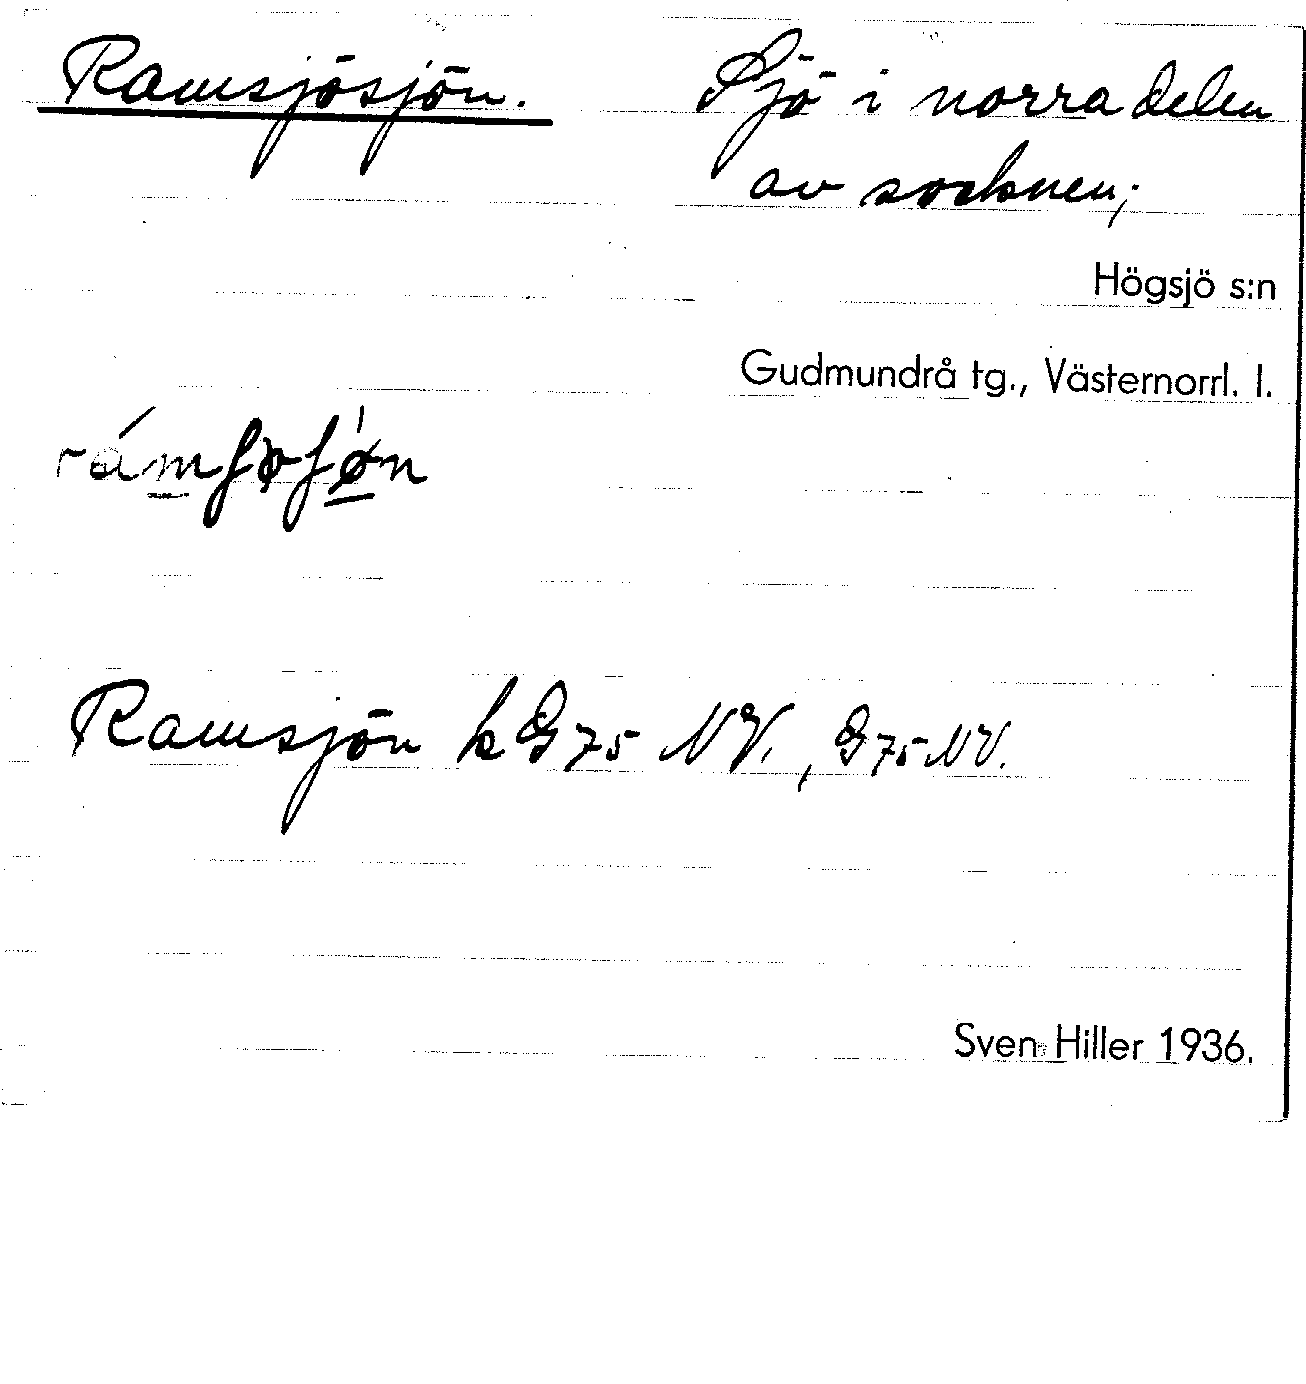 Ramsjösjön.
Sjö i norra delen
av socknen;
Högsjö s:n
Gudmundrå tg., Västernorrl. l.
rámʃøʃǿn
Ramsjön k G 75 NV., G 75 NV.
Sven Hiller 1936.